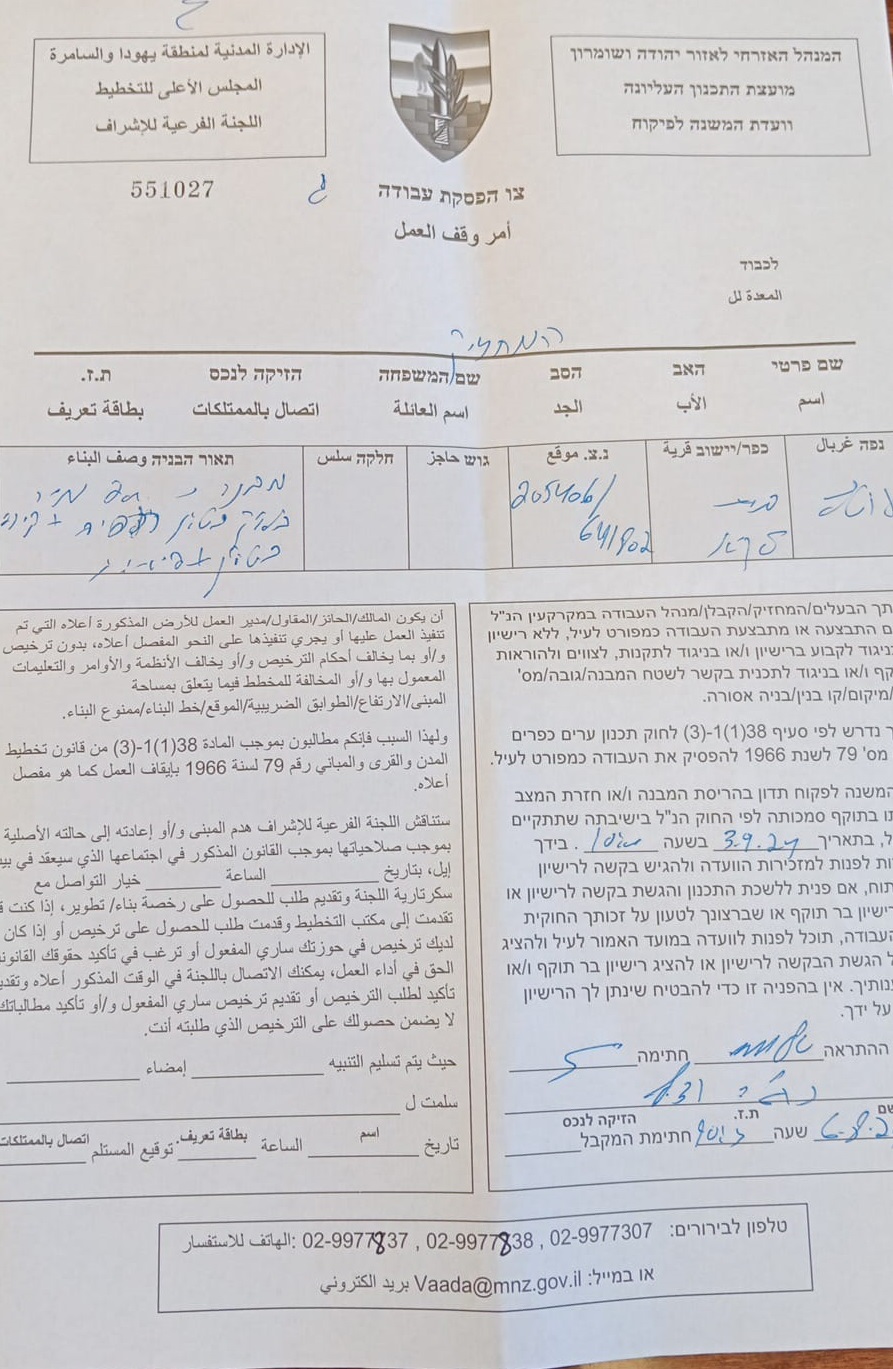 המנהל האזרחי לאזור יהודה ושומרון
מועצת התכנון העליונה
וועדת המשנה לפיקוח
الإدارة المدنية لمنطقة يهودا والسامرة
المجلس الأعلى للتخطيط
اللجنة الفرعية للإشراف
551027
צו הפסקת עבודה
أمر وقف العمل
לכבוד
المعدة لل
שם פרטי האב הסב שם המשפחה הזיקה לנכס ת.ז.
اسم الأب الجد اسم العائلة اتصال بالممتلكات بطاقة تعريف
נפה غربال כפר/יישוב قرية נ.צ. موقع גוש حاجز חלקה سلس תאור הבניה وصف البناء
205406/
641802
תך הבעלים/המחזיק/הקבלן/מנהל העבודה במקרקעין הנ"ל
ם התבצעה או מתבצעת העבודה כמפורט לעיל, ללא רישיון
ניגוד לקבוע ברישיון ו/או בניגוד לתקנות, לצווים ולהוראות
קף ו/או בניגוד לתכנית בקשר לשטח המבנה/גובה/מס'
/מיקום/קו בנין/בניה אסורה.
ך נדרש לפי סעיף 38(1)(1-3) לחוק תכנון ערים כפרים
מס' 79 לשנת 1966 להפסיק את העבודה כמפורט לעיל.
המשנה לפקוח תדון בהריסת המבנה ו/או חזרת המצב
תו בתוקף סמכותה לפי החוק הנ"ל בישיבתה שתתקיים
ל, בתאריך 3.9.24 בשעה . בידך
ות לפנות למזכירות הוועדה ולהגיש בקשה לרישיון
תוח, אם פנית ללשכת התכנון והגשת בקשה לרישיון או
רישיון בר תוקף או שברצונך לטעון על זכותך החוקית
העבודה, תוכל לפנות לוועדה במועד האמור לעיל ולהציג
ל הגשת הבקשה לרישיון או להציג רישיון בר תוקף ו/או
ענותיך. אין בהפניה זו כדי להבטיח שינתן לך הרישיון
על ידך.
ההתראה חתימה
שם ת.ז. הזיקה לנכס
שעה חתימת המקבל
أن يكون المالك/الحائز/المقاول/مدير العمل للأرض المذكورة أعلاه التي تم
تنفيذ العمل عليها أو يجري تنفيذها على النحو المفصل أعلاه، بدون ترخيص
و/أو بما يخالف أحكام الترخيص و/أو يخالف الأنظمة والأوامر والتعليمات
المعمول بها و/أو المخالفة للمخطط فيما يتعلق بمساحة
المبنى/الارتفاع/الطوابق الضريبية/الموقع/خط البناء/ممنوع البناء.
ولهذا السبب فإنكم مطالبون بموجب المادة 38(1)(1-3) من قانون تخطيط
المدن والقرى والمباني رقم 79 لسنة 1966 بإيقاف العمل كما هو مفصل
أعلاه.
ستناقش اللجنة الفرعية للإشراف هدم المبنى و/أو إعادته إلى حالته الأصلية
بموجب صلاحياتها بموجب القانون المذكور في اجتماعها الذي سيعقد في بي
إيل، بتاريخ الساعة خيار التواصل مع
سكرتارية اللجنة وتقديم طلب للحصول على رخصة بناء/ تطوير، إذا كنت ق
تقدمت إلى مكتب التخطيط وقدمت طلب للحصول على ترخيص أو إذا كان
لديك ترخيص في حوزتك ساري المفعول أو ترغب في تأكيد حقوقك القانون
الحق في أداء العمل، يمكنك الاتصال باللجنة في الوقت المذكور أعلاه وتقدي
تأكيد لطلب الترخيص أو تقديم ترخيص ساري المفعول و/أو تأكيد مطالباتك
لا يضمن حصولك على الترخيص الذي طلبته أنت.
حيث يتم تسليم التنبيه إمضاء
سلمت ل
اسم بطاقة تعريف. اتصال بالممتلكات
تاريخ الساعة توقيع المستلم
טלפון לבירורים: 02-9977307 , 02-9977838 , 02-9977837 :الهاتف للاستفسار
או במייל: Vaada@mnz.gov.il بريد الكتروني